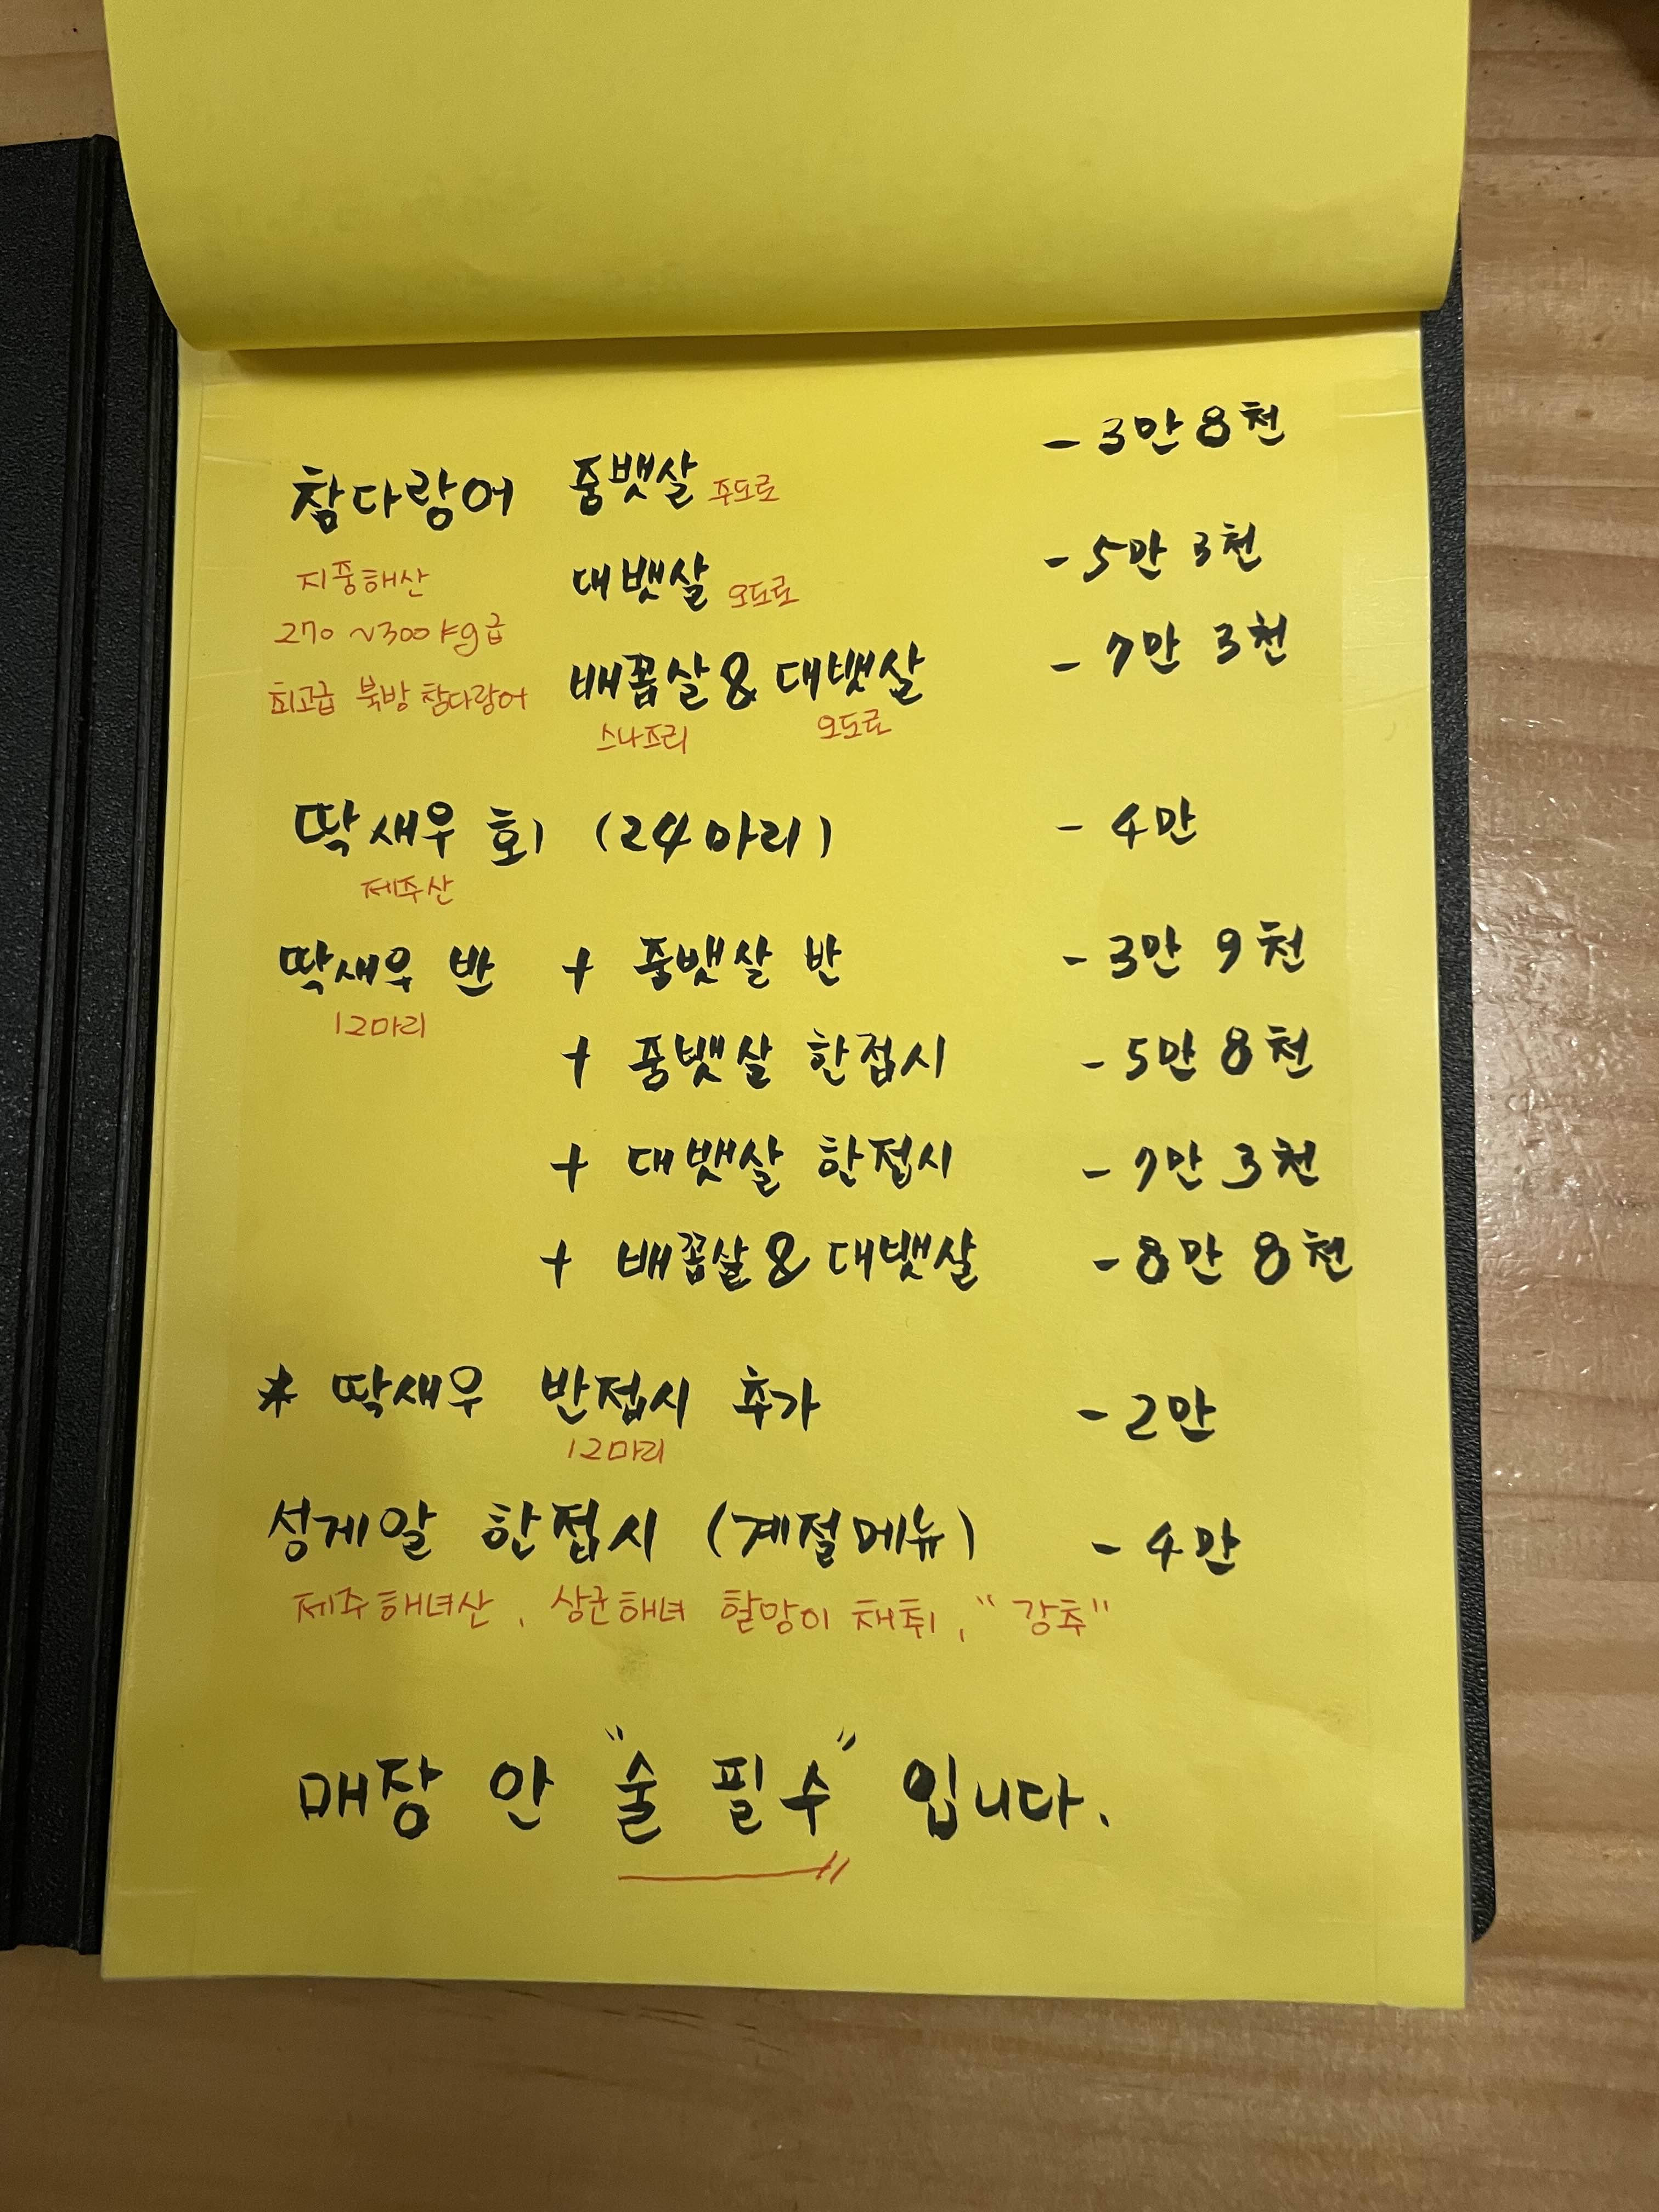 참다랑어 중뱃살 주도로 - 3만 8천
지중해산 대뱃살 오도로 - 5만 3천
270 ~300kg급
최고급 북방 참다랑어 배꼽살 & 대뱃살 - 7만 3천
스나즈리 오도로
딱새우 회 (24마리) - 4만
제주산
딱새우 반 + 중뱃살 반 - 3만 9천
12마리
+ 중뱃살 한접시 - 5만 8천
+ 대뱃살 한접시 - 7만 3천
+ 배꼽살 & 대뱃살 - 8만 8천
* 딱새우 반접시 추가 - 2만
12마리
성게알 한접시 (계절메뉴) - 4만
제주해녀산, 상군해녀 할망이 채취, "강추"
매장 안 "술 필수" 입니다.